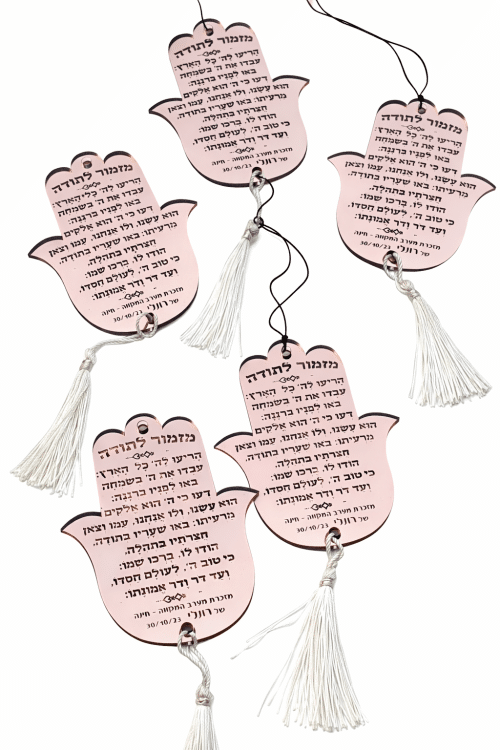 מזמור לתודה
הריעו לה' כל הארץ:
עבדו את ה' בשמחה
באו לפניו ברננה:
דעו כי ה' הוא אלקים
הוא עשנו, ולו אנחנו, עמו וצאן
מרעיתו: באו שעריו בתודה,
חצרתיו בתהלה,
הודו לו, ברכו שמו:
כי טוב ה', לעולם חסדו,
ועד דר ודר אמונתו:
מזכרת מערב המקווה - חינה
של 30/10/23
מזמור לתודה
הריעו לה' כל הארץ:
עבדו את ה' בשמחה
באו לפניו ברננה:
דעו כי ה' הוא אלקים
הוא עשנו, ולו אנחנו, עמו וצאן
מרעיתו: באו שעריו בתודה,
חצרתיו בתהלה,
הודו לו, ברכו שמו:
כי טוב ה', לעולם חסדו,
ועד דר ודר אמונתו:
מזכרת מערב המקווה - חינה
של 30/10/23
מזמור לתודה
הריעו לה' כל הארץ:
עבדו את ה' בשמחה
באו לפניו ברננה:
דעו כי ה' הוא אלקים
הוא עשנו, ולו אנחנו, עמו וצאן
מרעיתו: באו שעריו בתודה,
חצרתיו בתהלה,
הודו לו, ברכו שמו:
כי טוב ה', לעולם חסדו,
ועד דר ודר אמונתו:
מזכרת מערב המקווה - חינה
של 30/10/23
מזמור לתודה
הריעו לה' כל הארץ:
עבדו את ה' בשמחה
באו לפניו ברננה:
דעו כי ה' הוא אלקים
הוא עשנו, ולו אנחנו, עמו וצאן
מרעיתו: באו שעריו בתודה,
חצרתיו בתהלה,
הודו לו, ברכו שמו:
כי טוב ה', לעולם חסדו,
ועד דר ודר אמונתו:
מזכרת מערב המקווה - חינה
של 30/10/23
מזמור לתודה
הריעו לה' כל הארץ:
עבדו את ה' בשמחה
באו לפניו ברננה:
דעו כי ה' הוא אלקים
הוא עשנו, ולו אנחנו, עמו וצאן
מרעיתו: באו שעריו בתודה,
חצרתיו בתהלה,
הודו לו, ברכו שמו:
כי טוב ה', לעולם חסדו,
ועד דר ודר אמונתו:
מזכרת מערב המקווה - חינה
של 30/10/23